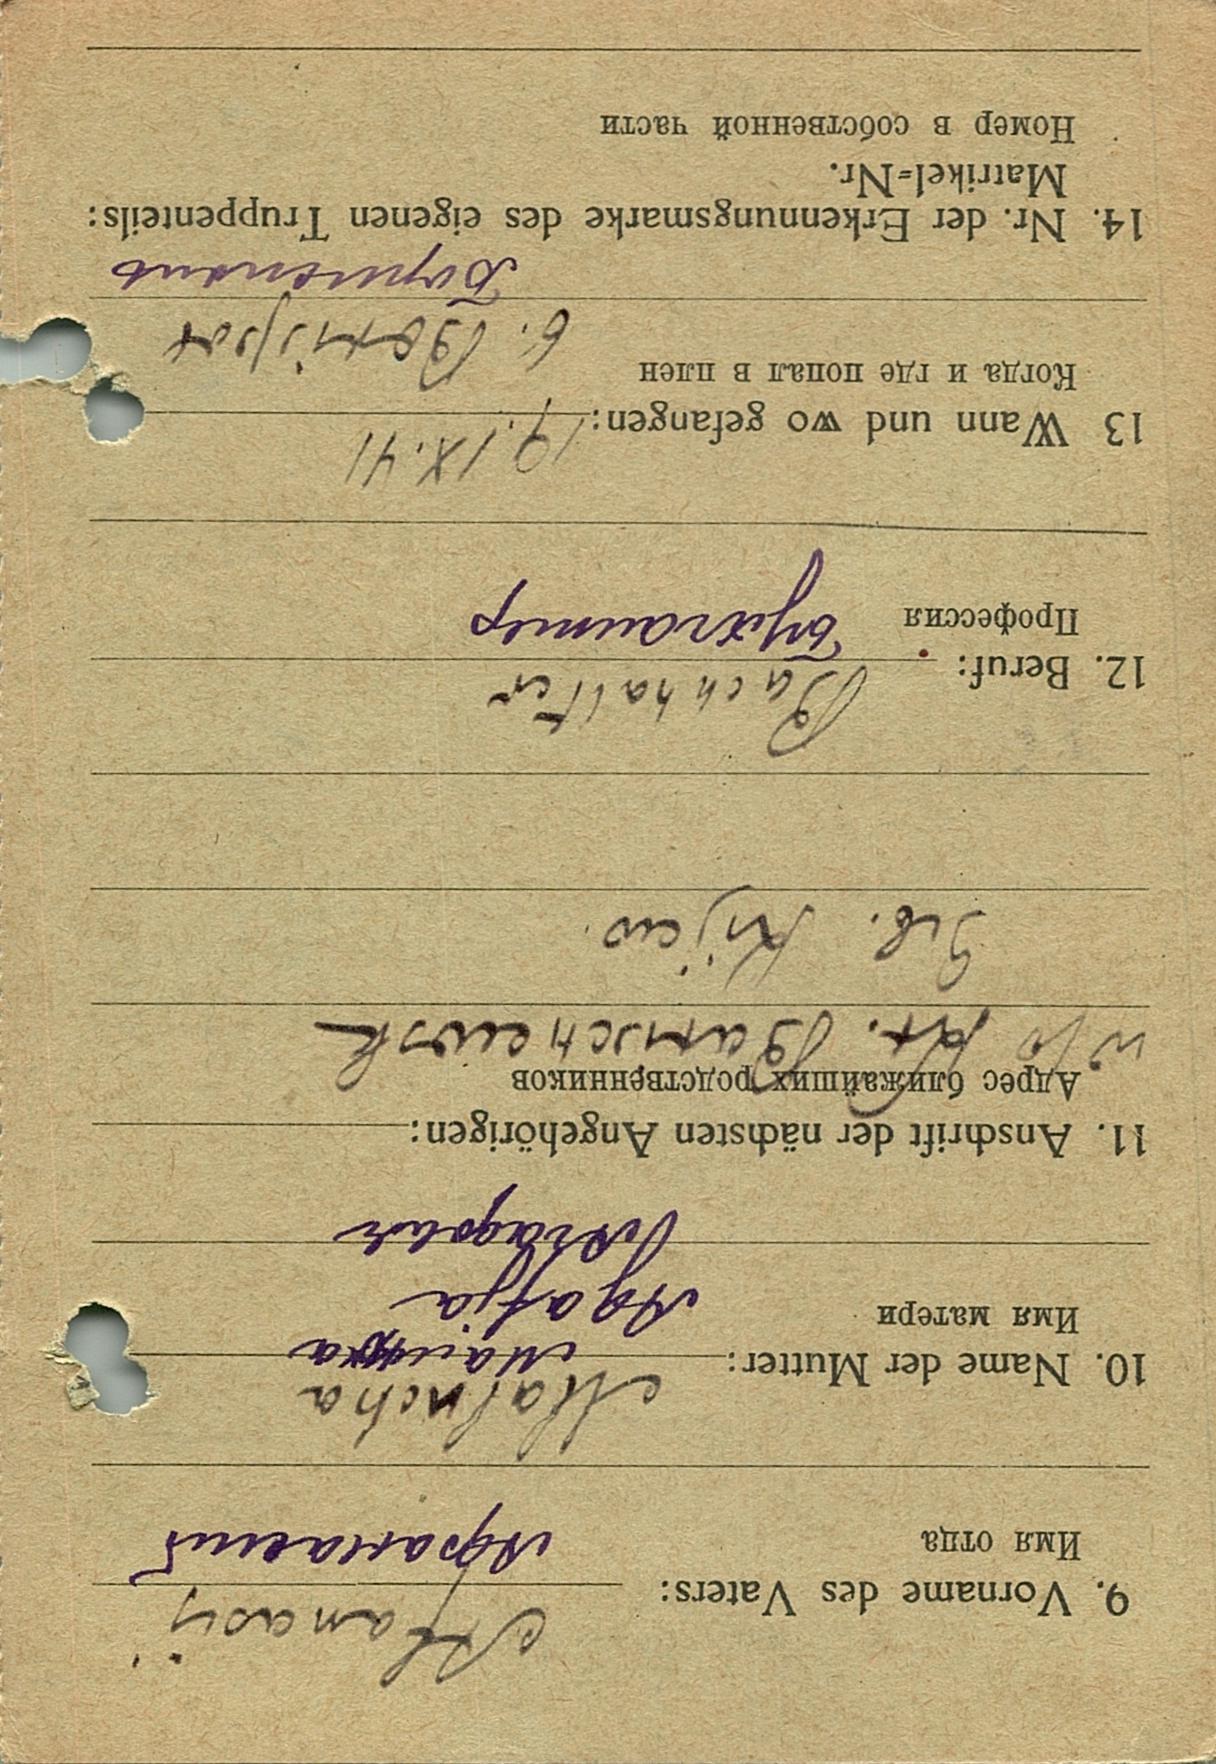 9. Vorname des Vaters: Afanasij
Имя отца Афанасий
Malncha
10. Name der Mutter:
Имя матери Agafja
11. Anschrift der nächsten Angehörigen:
Адрес ближайших родственников
Kr.
Geb. Kijew.
12. Beruf: Buchhalter
Профессия Бухгалтер
13 Wann und wo gefangen: 19.IX.41
Когда и где попал в плен
b. Borispol
Борисполь
14. Nr. der Erkennungsmarke des eigenen Truppenteils:
Matrikel=Nr.
Номер в собственной части